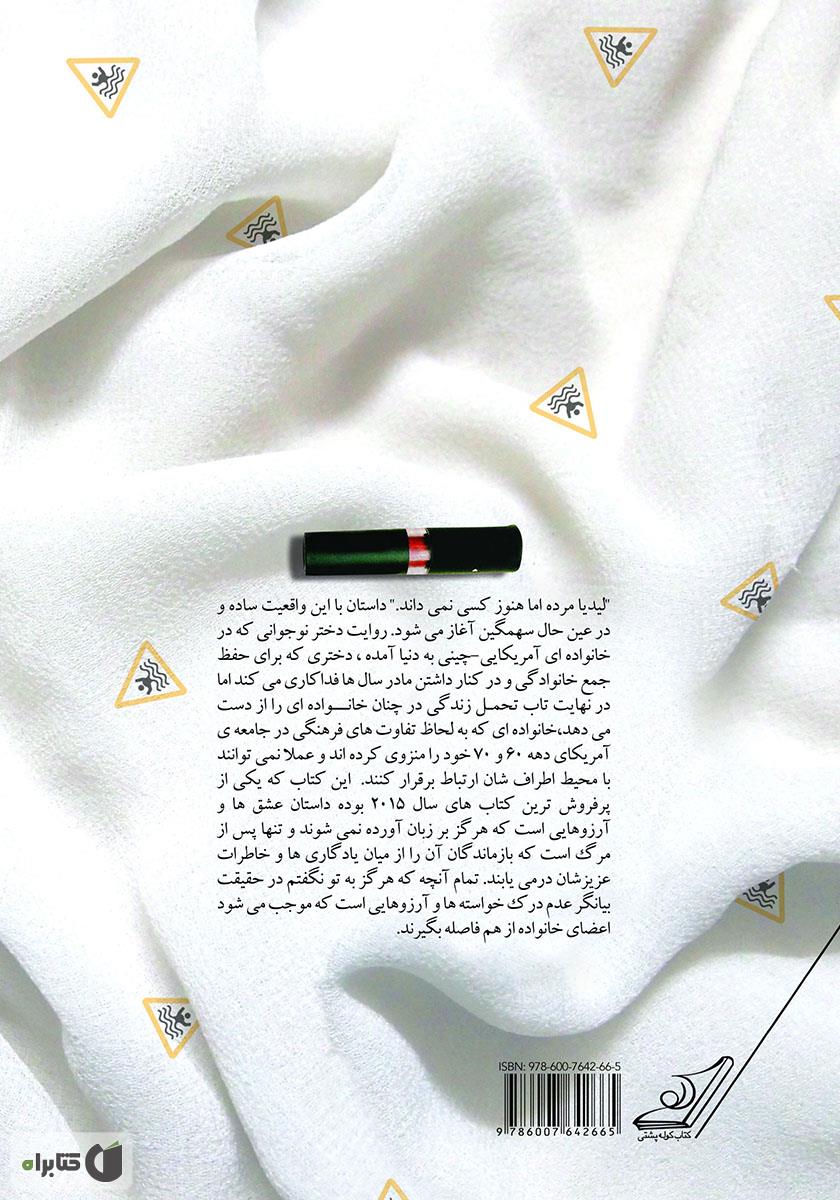 "لیدیا مرده اما هنوز کسی نمی داند." داستان با این واقعیت ساده و
در عین حال سهمگین آغاز می شود. روایت دختر نوجوانی که در
خانواده ای آمریکایی-چینی به دنیا آمده ، دختری که برای حفظ
جمع خانوادگی و در کنار داشتن مادر سال ها فداکاری می کند اما
در نهایت تاب تحمل زندگی در چنان خانواده ای را از دست
می دهد،خانواده ای که به لحاظ تفاوت های فرهنگی در جامعه ی
آمریکای دهه ۶۰ و ۷۰ خود را منزوی کرده اند و عملا نمی توانند
با محیط اطراف شان ارتباط برقرار کنند. این کتاب که یکی از
پرفروش ترین کتاب های سال ۲۰۱۵ بوده داستان عشق ها و
آرزوهایی است که هرگز بر زبان آورده نمی شوند و تنها پس از
مرگ است که بازماندگان آن را از میان یادگاری ها و خاطرات
عزیزشان درمی یابند. تمام آنچه که هرگز به تو نگفتم در حقیقت
بیانگر عدم درک خواسته ها و آرزوهایی است که موجب می شود
اعضای خانواده از هم فاصله بگیرند.
ISBN: 978-600-7642-66-5
9 786007 642665
کتاب کوله پشتی
کتابراه